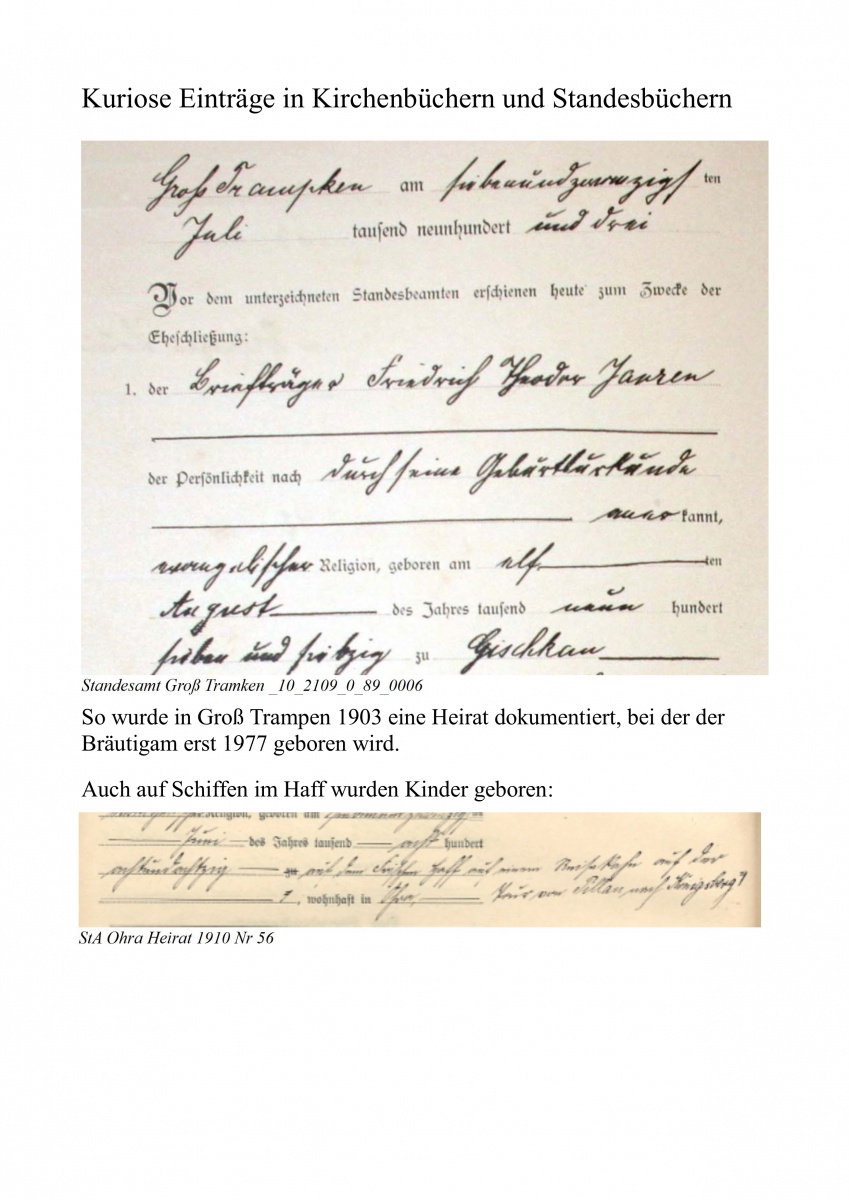 Kuriose Einträge in Kirchenbüchern und Standesbüchern
Groß Trampken am siebenundzwanzigsten
Juli tausend neunhundert und drei
Vor dem unterzeichneten Standesbeamten erschienen heute zum Zwecke der
Eheschließung:
1. der Briefträger Friedrich Theodor Janzen
der Persönlichkeit nach durch seine Geburtsurkunde
anerkannt,
evangelischer Religion, geboren am elften
August des Jahres tausend neunhundert
sieben und siebzig zu Gischkau
Standesamt Groß Tramken _10_2109_0_89_0006
So wurde in Groß Trampen 1903 eine Heirat dokumentiert, bei der der
Bräutigam erst 1977 geboren wird.
Auch auf Schiffen im Haff wurden Kinder geboren:
Religion, geboren am
Juni des Jahres tausend acht hundert
achtundachtzig auf dem Frischen Haff auf einem Reisekahn auf der
, wohnhaft in Ohra, Tour von Pillau nach Königsberg
StA Ohra Heirat 1910 Nr 56